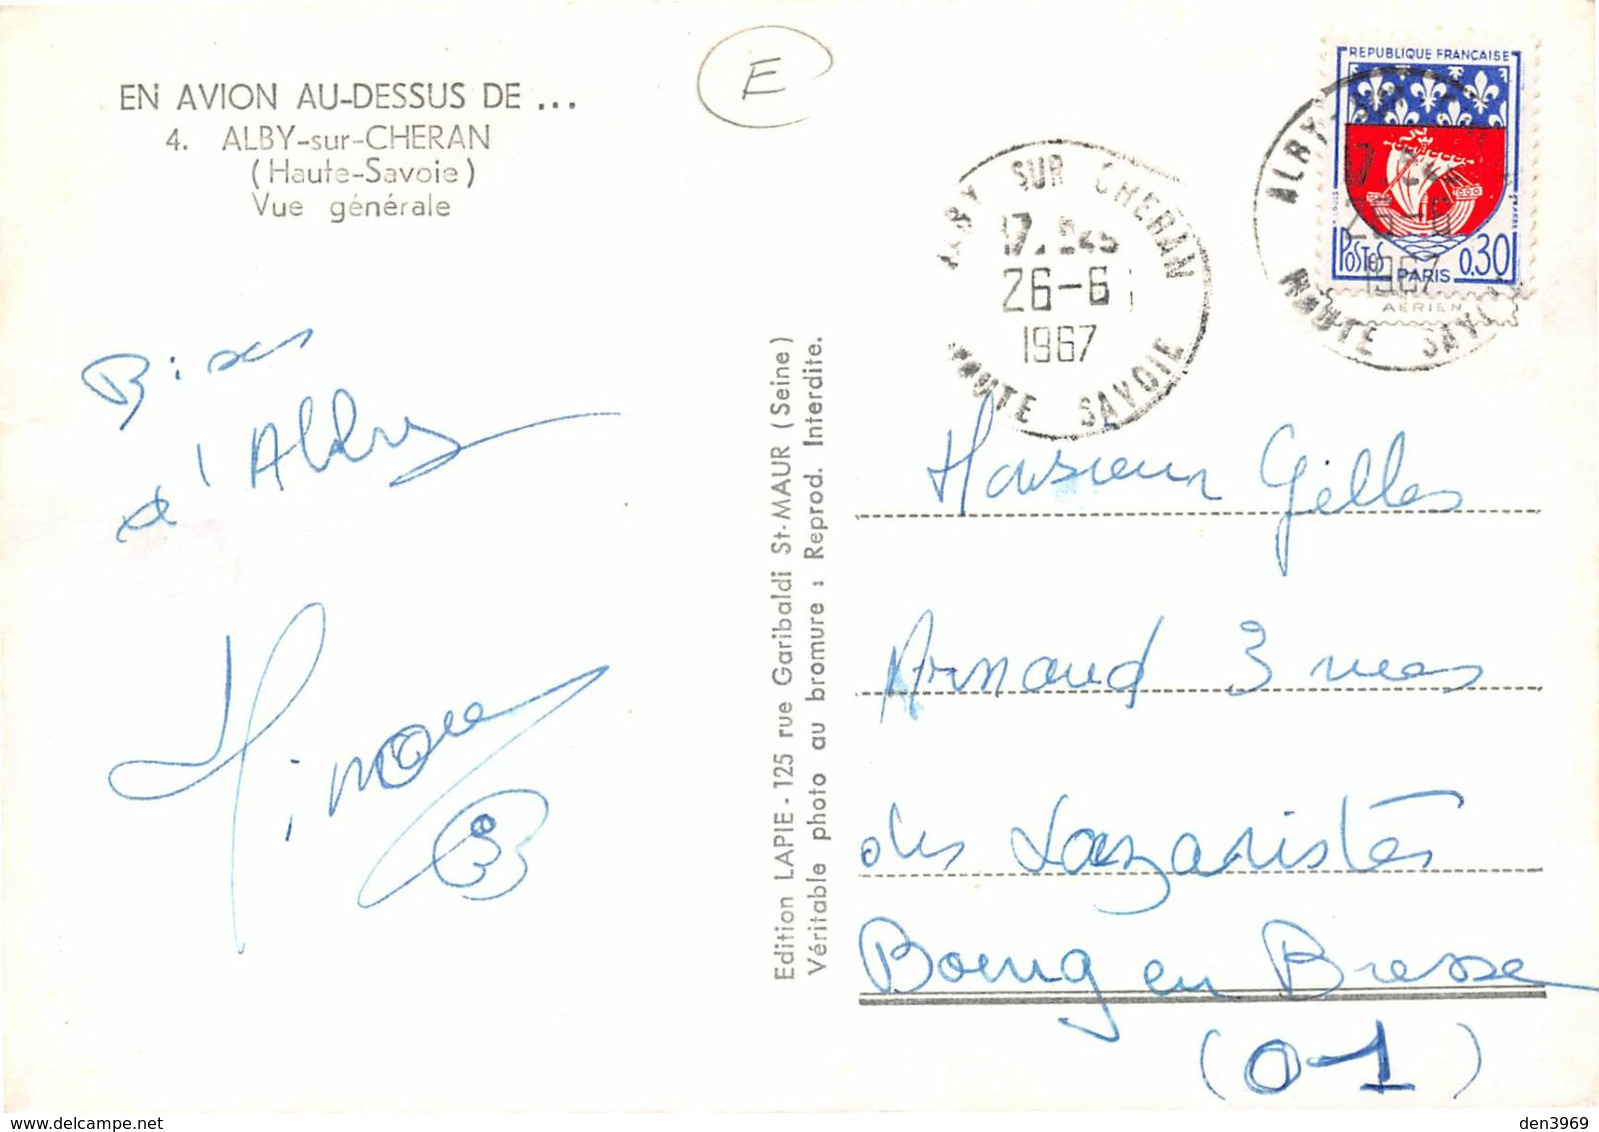 EN AVION AU-DESSUS DE ...
4. ALBY-sur-CHERAN
(Haute-Savoie)
Vue générale
E
Bises
d'Alby
Edition LAPIE - 125 rue Garibaldi St-MAUR (Seine)
Véritable photo au bromure : Reprod. Interdite.
ALBY SUR CHERAN
26-6
1967
HAUTE SAVOIE
REPUBLIQUE FRANÇAISE
POSTES PARIS 0,30
AERIEN
ALBY-SUR
1967
HAUTE SAVOIE
Monsieur Gilles
Arnaud 3 rues
des Lazaristes
Bourg en Bresse
(01)
den3969